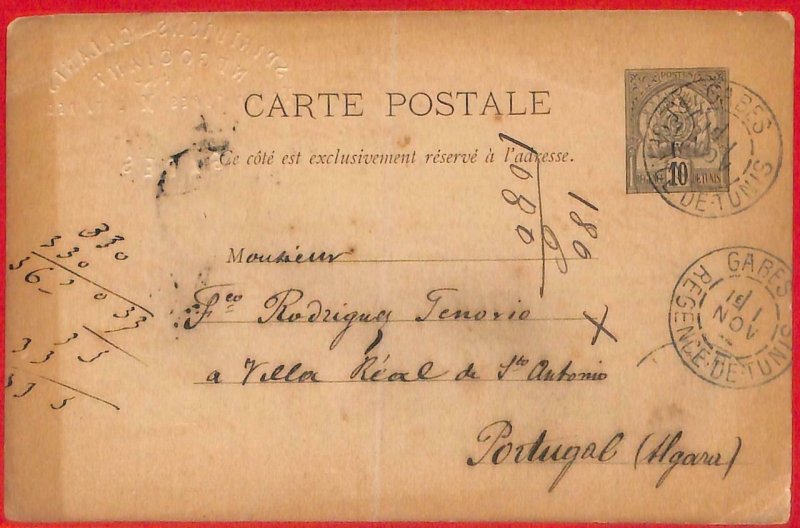 CARTE POSTALE
Ce côté est exclusivement réservé à l'adresse.
POSTES
10
RÉGENCE DE TUNIS
GABES
RÉGENCE-DE-TUNIS
GABES
1
NOV
RÉGENCE-DE-TUNIS
NÉGOCIANT
180
1080
6
Monsieur
Fco Rodrigues Tenorio
a Villa Réal de Sto Antonio
Portugal (Algara)
330
330